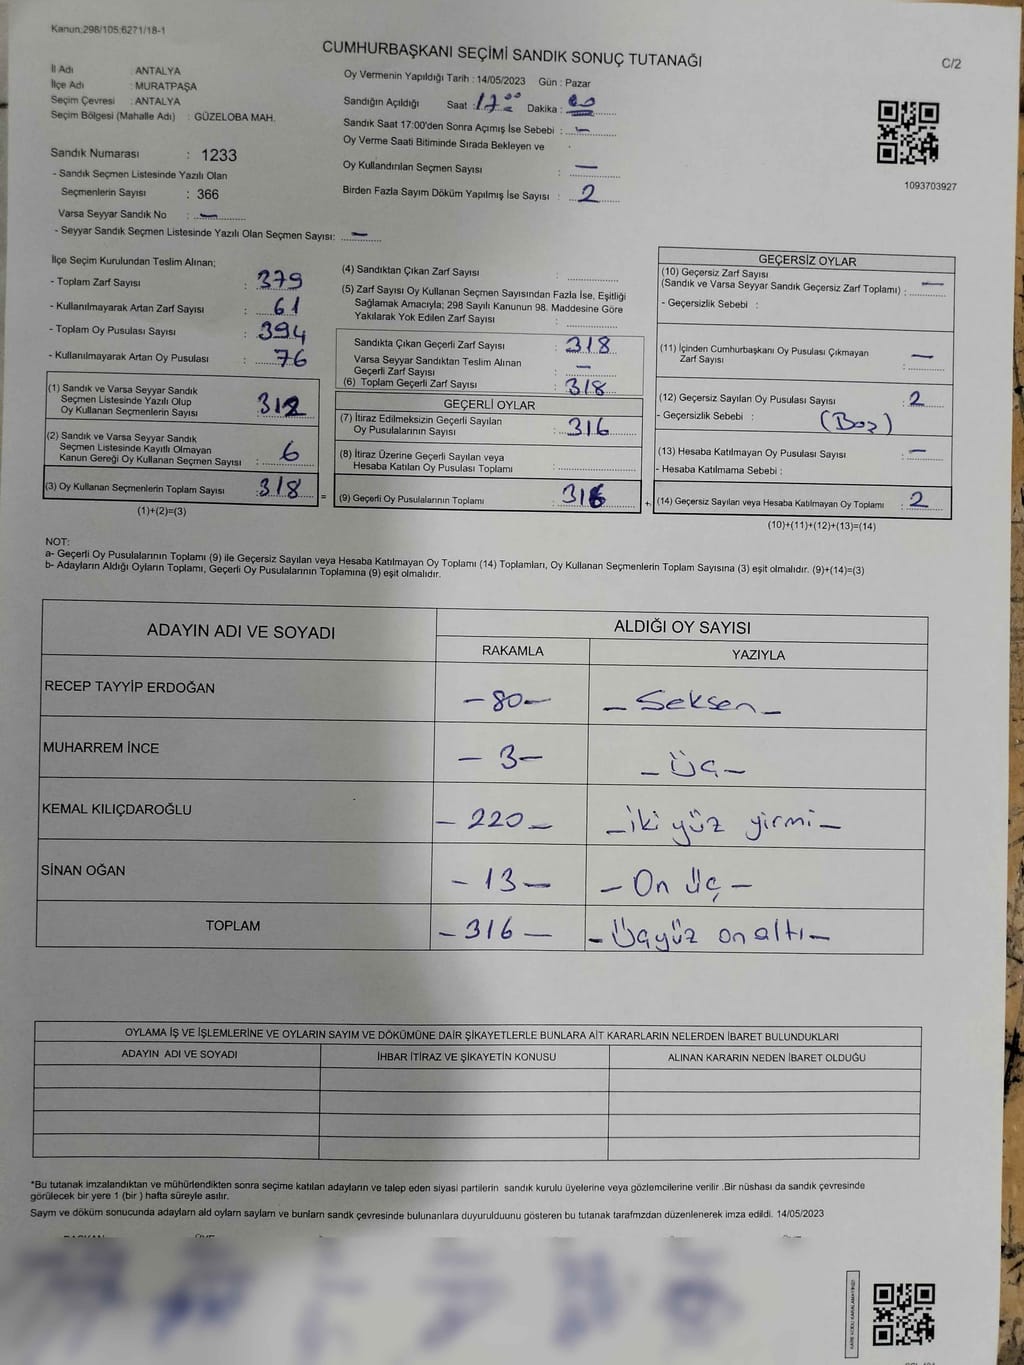 Kanun;298/105;6271/18-1
CUMHURBAŞKANI SEÇİMİ SANDIK SONUÇ TUTANAĞI
C/2
İl Adı : ANTALYA
İlçe Adı : MURATPAŞA
Seçim Çevresi : ANTALYA
Seçim Bölgesi (Mahalle Adı) : GÜZELOBA MAH.
Sandık Numarası : 1233
- Sandık Seçmen Listesinde Yazılı Olan
Seçmenlerin Sayısı : 366
Varsa Seyyar Sandık No : —
- Seyyar Sandık Seçmen Listesinde Yazılı Olan Seçmen Sayısı: —
Oy Vermenin Yapıldığı Tarih : 14/05/2023 Gün : Pazar
Sandığın Açıldığı Saat : 17:00 Dakika : 00
Sandık Saat 17:00'den Sonra Açımış İse Sebebi : —
Oy Verme Saati Bitiminde Sırada Bekleyen ve
Oy Kullandırılan Seçmen Sayısı : —
Birden Fazla Sayım Döküm Yapılmış İse Sayısı : 2
1093703927
İlçe Seçim Kurulundan Teslim Alınan;
- Toplam Zarf Sayısı : 379
- Kullanılmayarak Artan Zarf Sayısı : 61
- Toplam Oy Pusulası Sayısı : 394
- Kullanılmayarak Artan Oy Pusulası : 76
(1) Sandık ve Varsa Seyyar Sandık
Seçmen Listesinde Yazılı Olup
Oy Kullanan Seçmenlerin Sayısı : 312
(2) Sandık ve Varsa Seyyar Sandık
Seçmen Listesinde Kayıtlı Olmayan
Kanun Gereği Oy Kullanan Seçmen Sayısı : 6
(3) Oy Kullanan Seçmenlerin Toplam Sayısı : 318 =
(1)+(2)=(3)
(4) Sandıktan Çıkan Zarf Sayısı :
(5) Zarf Sayısı Oy Kullanan Seçmen Sayısından Fazla İse, Eşitliği
Sağlamak Amacıyla; 298 Sayılı Kanunun 98. Maddesine Göre
Yakılarak Yok Edilen Zarf Sayısı :
Sandıkta Çıkan Geçerli Zarf Sayısı : 318
Varsa Seyyar Sandıktan Teslim Alınan
Geçerli Zarf Sayısı : —
(6) Toplam Geçerli Zarf Sayısı : 318
GEÇERLİ OYLAR
(7) İtiraz Edilmeksizin Geçerli Sayılan
Oy Pusulalarının Sayısı : 316
(8) İtiraz Üzerine Geçerli Sayılan veya
Hesaba Katılan Oy Pusulası Toplamı :
(9) Geçerli Oy Pusulalarının Toplamı : 316 +
GEÇERSİZ OYLAR
(10) Geçersiz Zarf Sayısı
(Sandık ve Varsa Seyyar Sandık Geçersiz Zarf Toplamı) : —
- Geçersizlik Sebebi :
(11) İçinden Cumhurbaşkanı Oy Pusulası Çıkmayan
Zarf Sayısı : —
(12) Geçersiz Sayılan Oy Pusulası Sayısı : 2
- Geçersizlik Sebebi : (Boş)
(13) Hesaba Katılmayan Oy Pusulası Sayısı : —
- Hesaba Katılmama Sebebi :
(14) Geçersiz Sayılan veya Hesaba Katılmayan Oy Toplamı : 2
(10)+(11)+(12)+(13)=(14)
NOT:
a- Geçerli Oy Pusulalarının Toplamı (9) ile Geçersiz Sayılan veya Hesaba Katılmayan Oy Toplamı (14) Toplamları, Oy Kullanan Seçmenlerin Toplam Sayısına (3) eşit olmalıdır. (9)+(14)=(3)
b- Adayların Aldığı Oyların Toplamı, Geçerli Oy Pusulalarının Toplamına (9) eşit olmalıdır.
ADAYIN ADI VE SOYADI
ALDIĞI OY SAYISI
RAKAMLA YAZIYLA
RECEP TAYYİP ERDOĞAN — 80 — — Seksen —
MUHARREM İNCE — 3 — — Üç —
KEMAL KILIÇDAROĞLU — 220 — — iki yüz yirmi —
SİNAN OĞAN — 13 — — On üç —
TOPLAM — 316 — — Üçyüz on altı —
OYLAMA İŞ VE İŞLEMLERİNE VE OYLARIN SAYIM VE DÖKÜMÜNE DAİR ŞİKAYETLERLE BUNLARA AİT KARARLARIN NELERDEN İBARET BULUNDUKLARI
ADAYIN ADI VE SOYADI İHBAR İTİRAZ VE ŞİKAYETİN KONUSU ALINAN KARARIN NEDEN İBARET OLDUĞU
*Bu tutanak imzalandıktan ve mühürlendikten sonra seçime katılan adayların ve talep eden siyasi partilerin sandık kurulu üyelerine veya gözlemcilerine verilir .Bir nüshası da sandık çevresinde
görülecek bir yere 1 (bir ) hafta süreyle asılır.
Saym ve döküm sonucunda adaylarn ald oylarn saylarn ve bunlarn sandk çevresinde bulunanlara duyurulduunu gösteren bu tutanak tarafmzdan düzenlenerek imza edildi. 14/05/2023